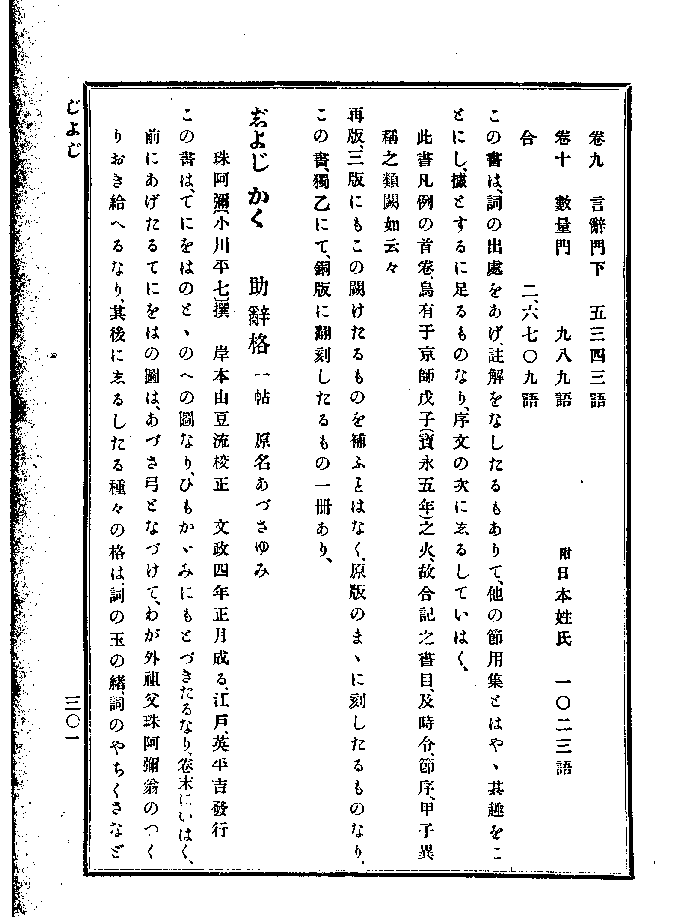 卷九　言辭門下　五三四三語
卷十　數量門　九八九語　附日本姓氏　一〇二三語
合　二、六七〇九語
この書は、詞の出處をあげ、註解をなしたるもありて、他の節用集とはやゝ其趣をこ
とにし、據とするに足るものなり、序文の次にゑるしていはく、
此書凡例の首卷、烏有于京師戊子(寶永五年)之火、故合記之書目、及時令、節序、甲子異
稱之類闕如云々
再版、三版にもこの闕けたるものを補ふとはなく、原版のまゝに刻したるものなり、
この書、獨乙にて、銅版に翻刻したるもの一册あり、
じよじかく　助辭格　一帖　原名あづさゆみ
珠阿彌(小川平七)撰　岸本由豆流校正　文政四年正月成る、江戸、英平吉發行
この書は、てにをはのとゝのへの圖なり、ひもかゞみにもとづきたるなり、卷末にいはく、
前にあげたるてにをはの圖は、あづさ弓となづけて、わが外祖父珠阿彌翁のつく
りおき給へるなり、其後にゑるしたる種々の格は、詞の玉の緒、詞のやちくさなど
じよじ
三〇一